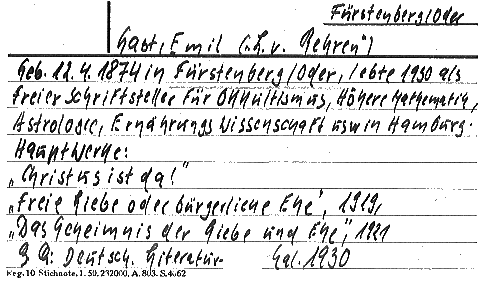 Fürstenberg/Oder
Gast, Emil („L. v. Rehren")
Geb. 12.4.1874 in Fürstenberg/Oder, lebte 1930 als
freier Schriftsteller für Okkultismus, Höhere Mathematik,
Astrologie, Ernährungswissenschaft usw in Hamburg.
Hauptwerke:
„Christus ist da!"
„Freie Liebe oder bürgerliche Ehe", 1919,
„Das Geheimnis der Liebe und Ehe", 1921
Deutsch. Literatur- Kal. 1930
Reg. 10 Stichnote, 1. 50. 232000, A. 803. S. 4.62